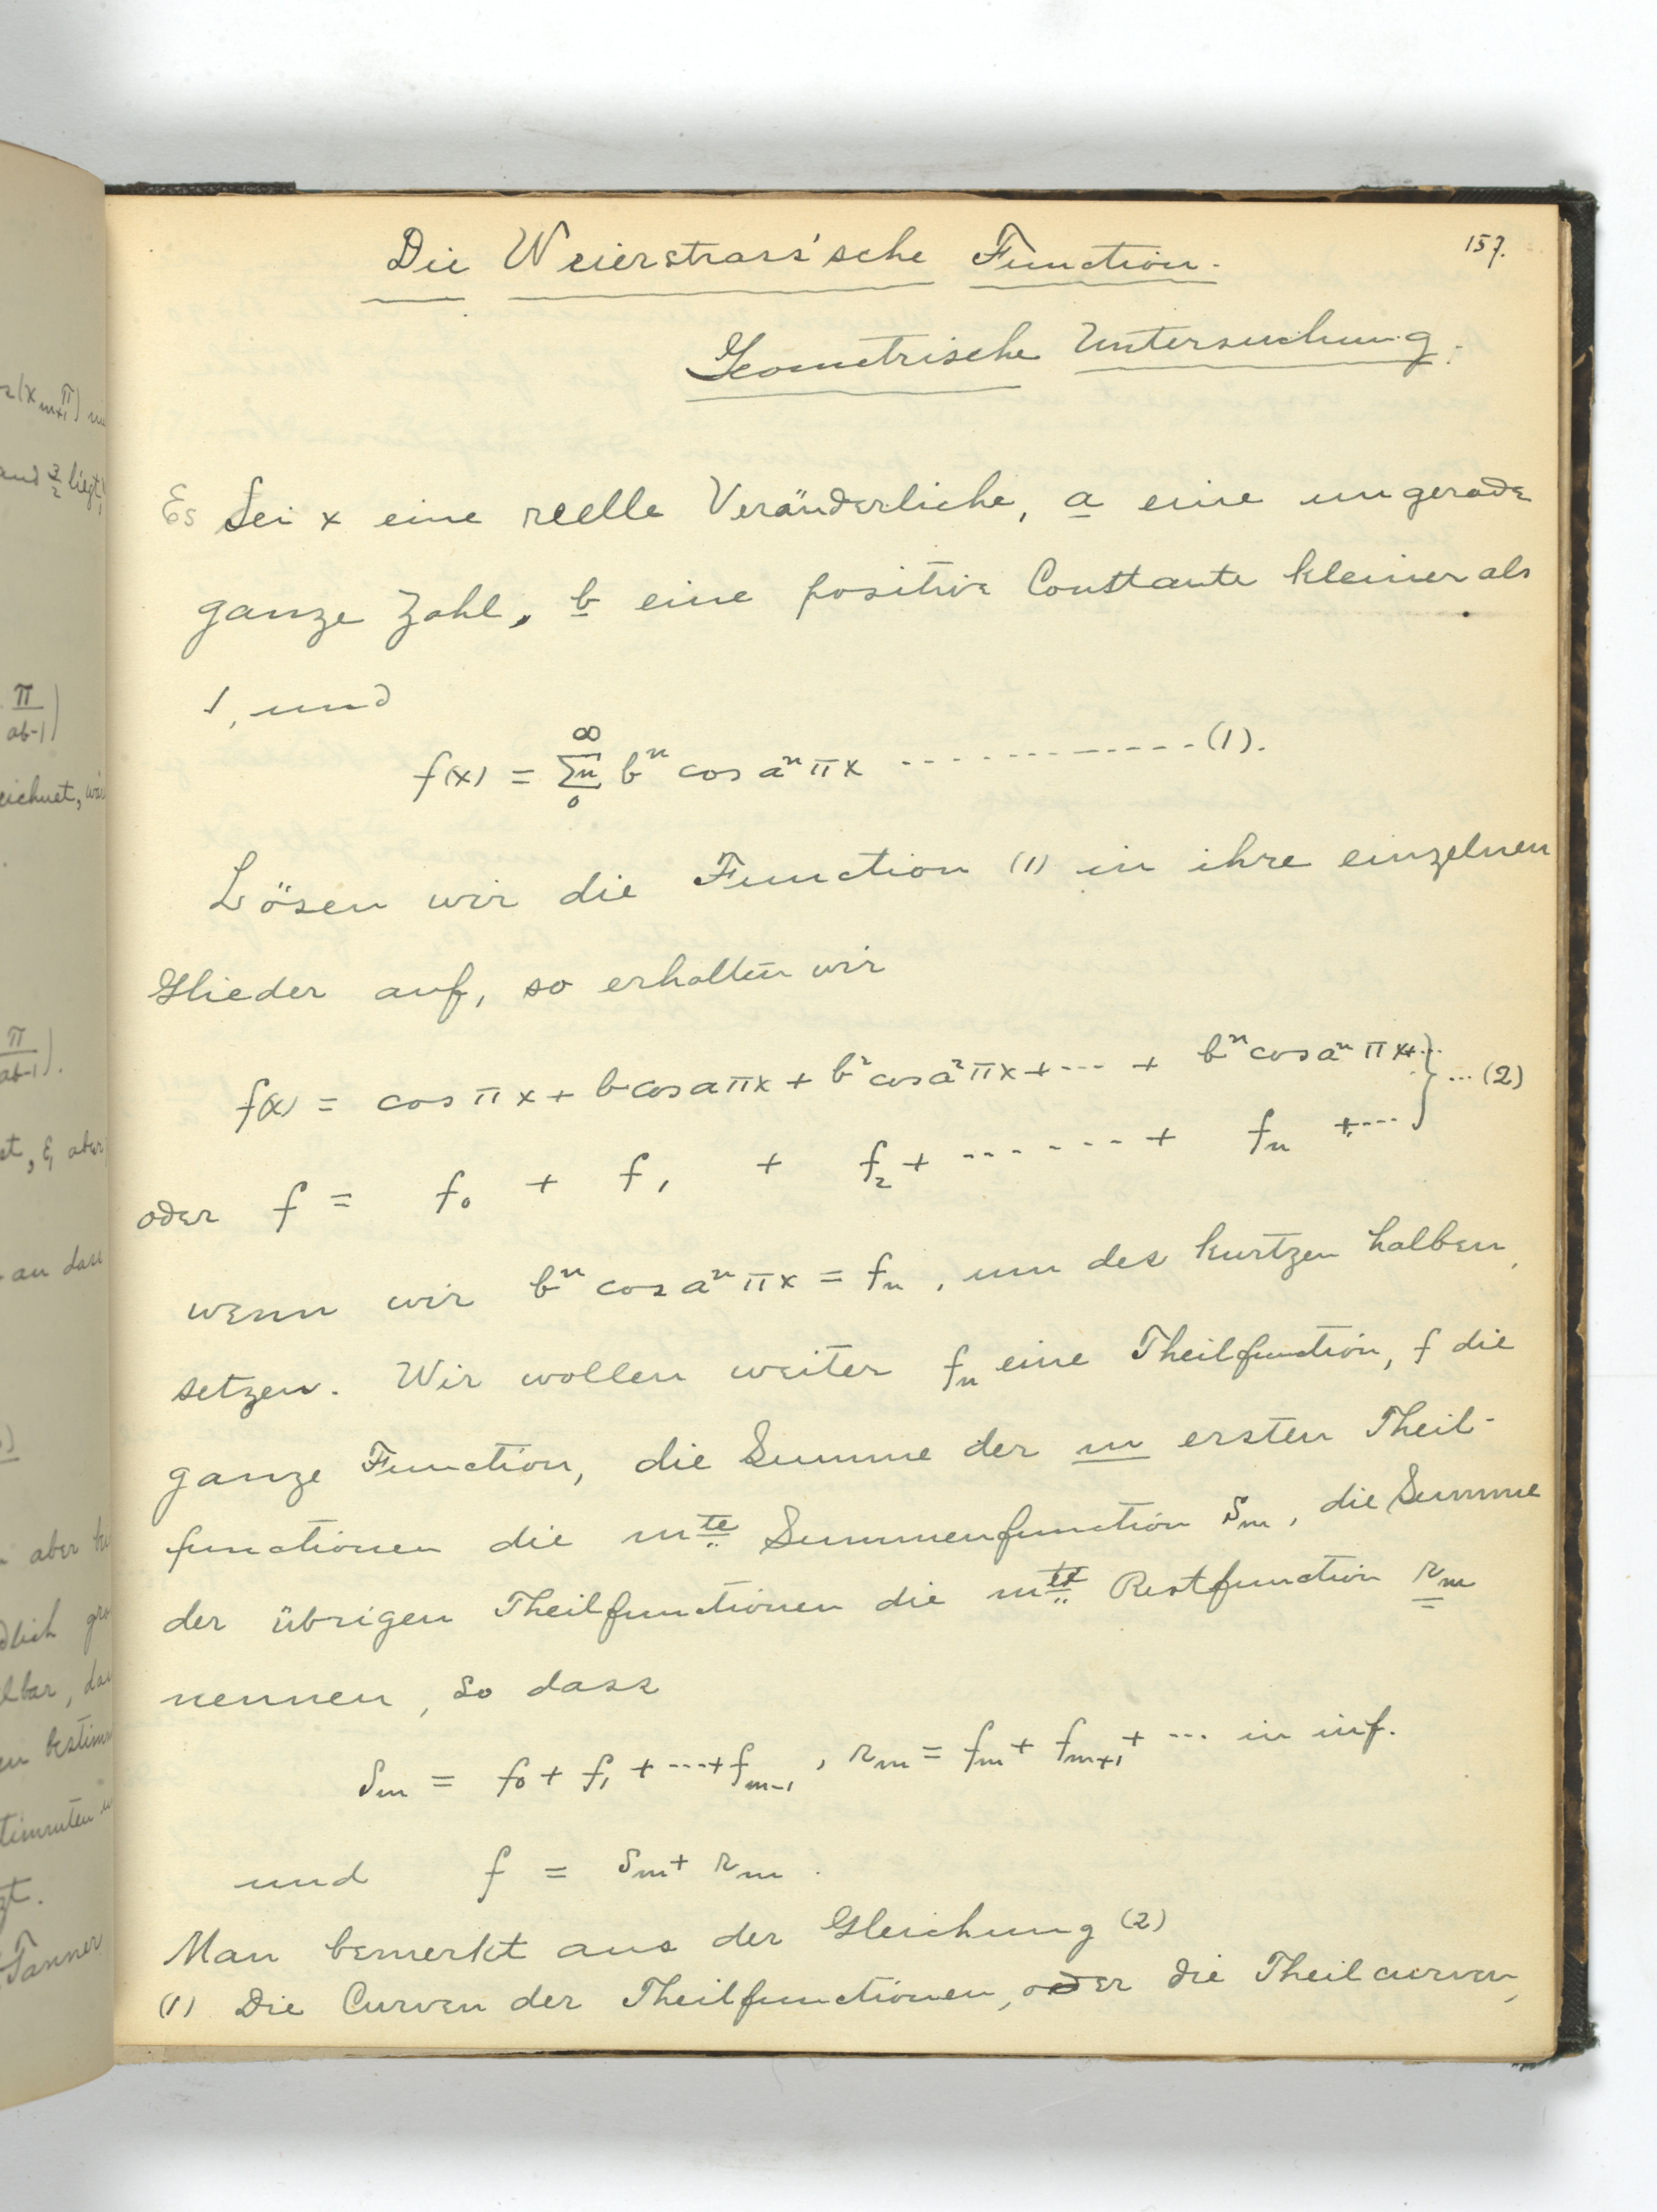 157.
Die Weierstrass'sche Function.
Geometrische Untersuchung.
Es Sei x eine reelle Veränderliche, a eine ungerade
ganze Zahl, b eine positive Constante kleiner als
1, und
f(x) = ∑n_0^∞ b^n cos a^n πx ------------- (1).
Lösen wir die Function (1) in ihre einzelnen
Glieder auf, so erhalten wir
f(x) = cos πx + b cos aπx + b² cos a² πx + --- + b^n cos a^n πx + ... } ... (2)
oder f = f₀ + f₁ + f₂ + ------ + f_n + ---
wenn wir b^n cos a^n πx = f_n, um des kurtzen halben,
setzen. Wir wollen weiter f_n eine Theilfunction, f die
ganze Function, die Summe der m ersten Theil-
functionen die m^te Summenfunction S_m, die Summe
der übrigen Theilfunctionen die m^te Restfunction r_m
nennen, so dass
S_m = f₀ + f₁ + ---- + f_{m-1}, r_m = f_m + f_{m+1} + --- in inf.
und f = S_m + r_m.
Man bemerkt aus der Gleichung (2)
(1) Die Curven der Theilfunctionen, oder die Theilcurven,
π
ab-1)
π
ab-1).
Tanner